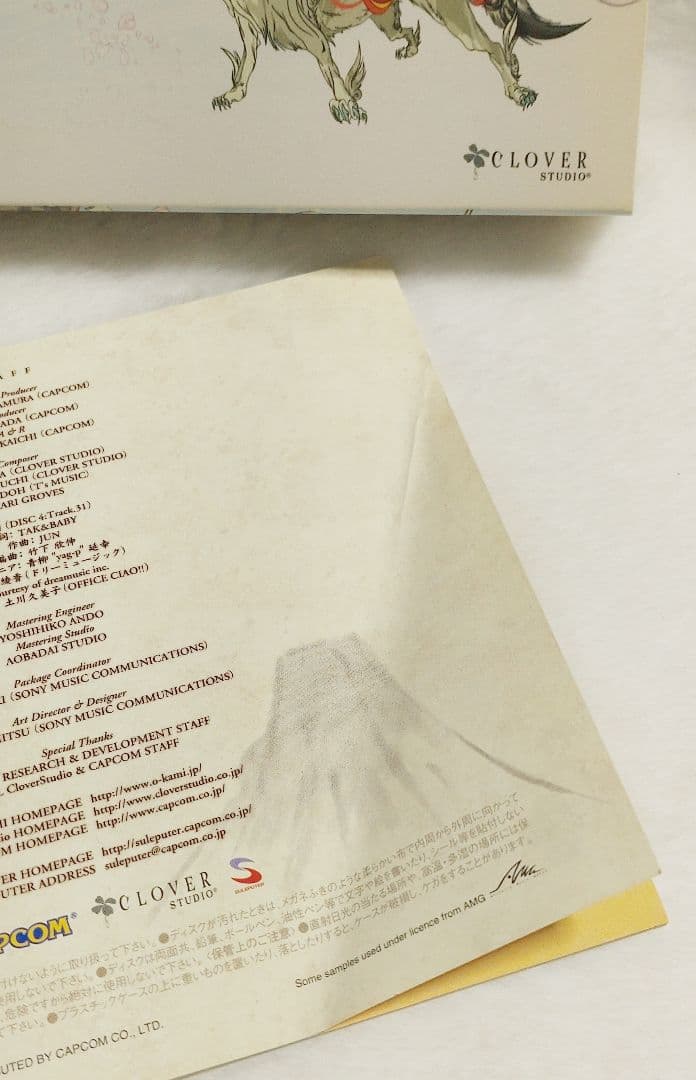 CLOVER
STUDIO®
AFF
Producer
AMURA (CAPCOM)
oducer
ADA (CAPCOM)
& R
KAICHI (CAPCOM)
Composer
A (CLOVER STUDIO)
UCHI (CLOVER STUDIO)
DOH (T's MUSIC)
ARI GROVES
(DISC 4:Track.31)
詞: TAK&BABY
作曲: JUN
編曲: 竹下 欣伸
ニア: 青柳 "yag-p" 延幸
綾香(ドリーミュージック)
urtesy of dreamusic inc.
土川久美子(OFFICE CIAO!!)
Mastering Engineer
YOSHIHIKO ANDO
Mastering Studio
AOBADAI STUDIO
Package Coordinator
I (SONY MUSIC COMMUNICATIONS)
Art Director & Designer
ITSU (SONY MUSIC COMMUNICATIONS)
Special Thanks
RESEARCH & DEVELOPMENT STAFF
CloverStudio & CAPCOM STAFF
HI HOMEPAGE http://www.o-kami.jp/
io HOMEPAGE http://www.cloverstudio.co.jp/
OM HOMEPAGE http://www.capcom.co.jp/
ER HOMEPAGE http://suleputer.capcom.co.jp/
UTER ADDRESS suleputer@capcom.co.jp
PCOM® CLOVER STUDIO® SULEPUTER
けないように取り扱って下さい。●ディスクが汚れたときは、メガネふきのような柔らかい布で内周から外周に向かって
使用しないで下さい。●ディスクは両面共、鉛筆、ボールペン、油性ペン等で文字や絵を書いたり、シール等を貼付しない
、危険ですから絶対に使用しないで下さい。〈保管上のご注意〉●直射日光の当たる場所や、高温・多湿の場所には保
て下さい。●プラスチックケースの上に重いものを置いたり、落としたりすると、ケースが破損し、ケガをすることがあります。
Some samples used under licence from AMG
UTED BY CAPCOM CO., LTD.